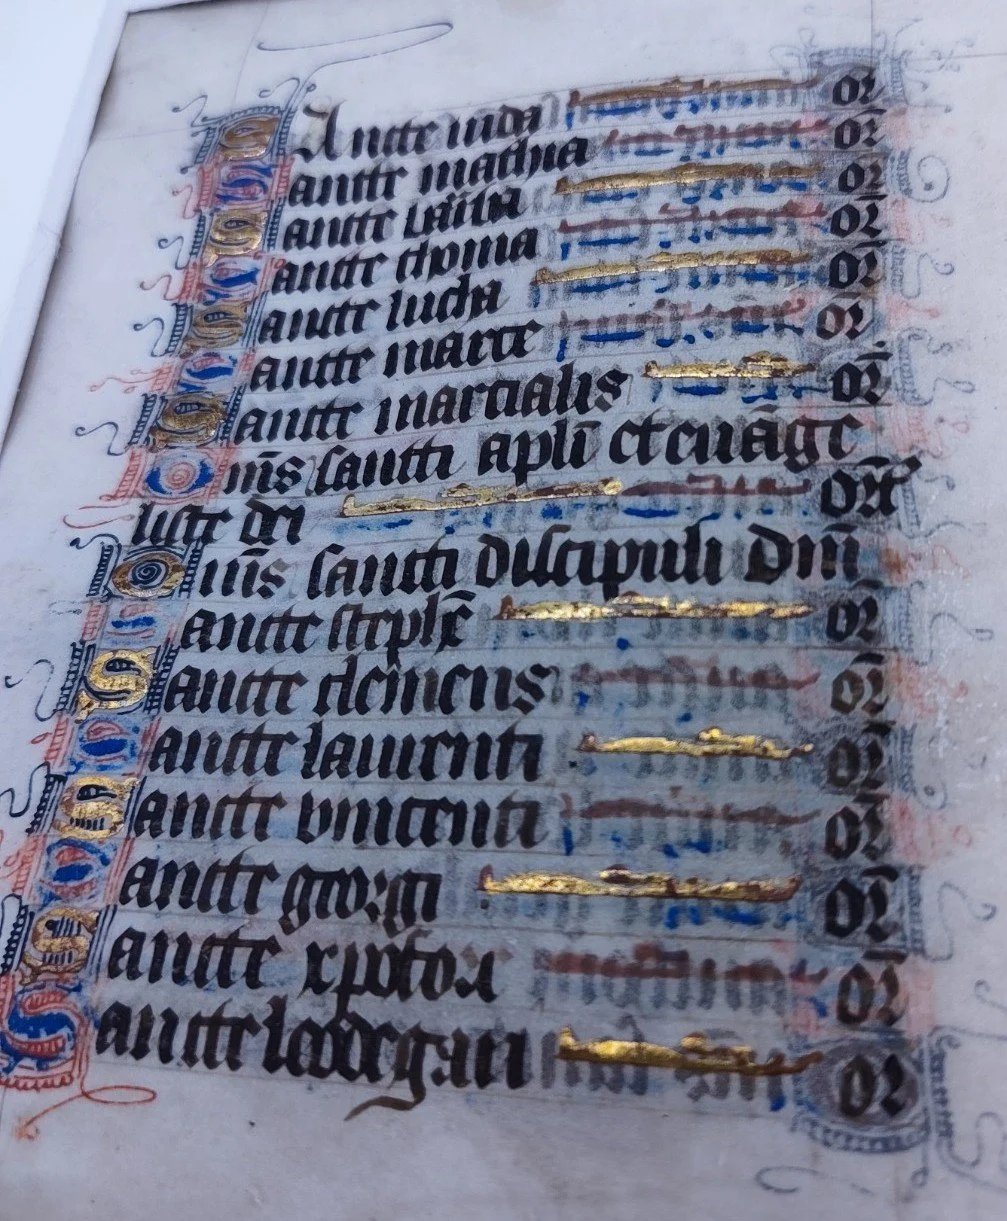 SAncte iuda or̄
Sancte mathia or̄
Sancte barnaba or̄
Sancte thoma or̄
Sancte lucha or̄
Sancte marce or̄
Sancte martialis or̄
Om̄s sancti apl̄i et euāge
liste dei or̄
Om̄s sancti discipuli dm̄
Sancte stephē or̄
Sancte clemens or̄
Sancte laurenti or̄
Sancte vincenti or̄
Sancte georgi or̄
Sancte xpofor̄ or̄
Sancte leodegari or̄